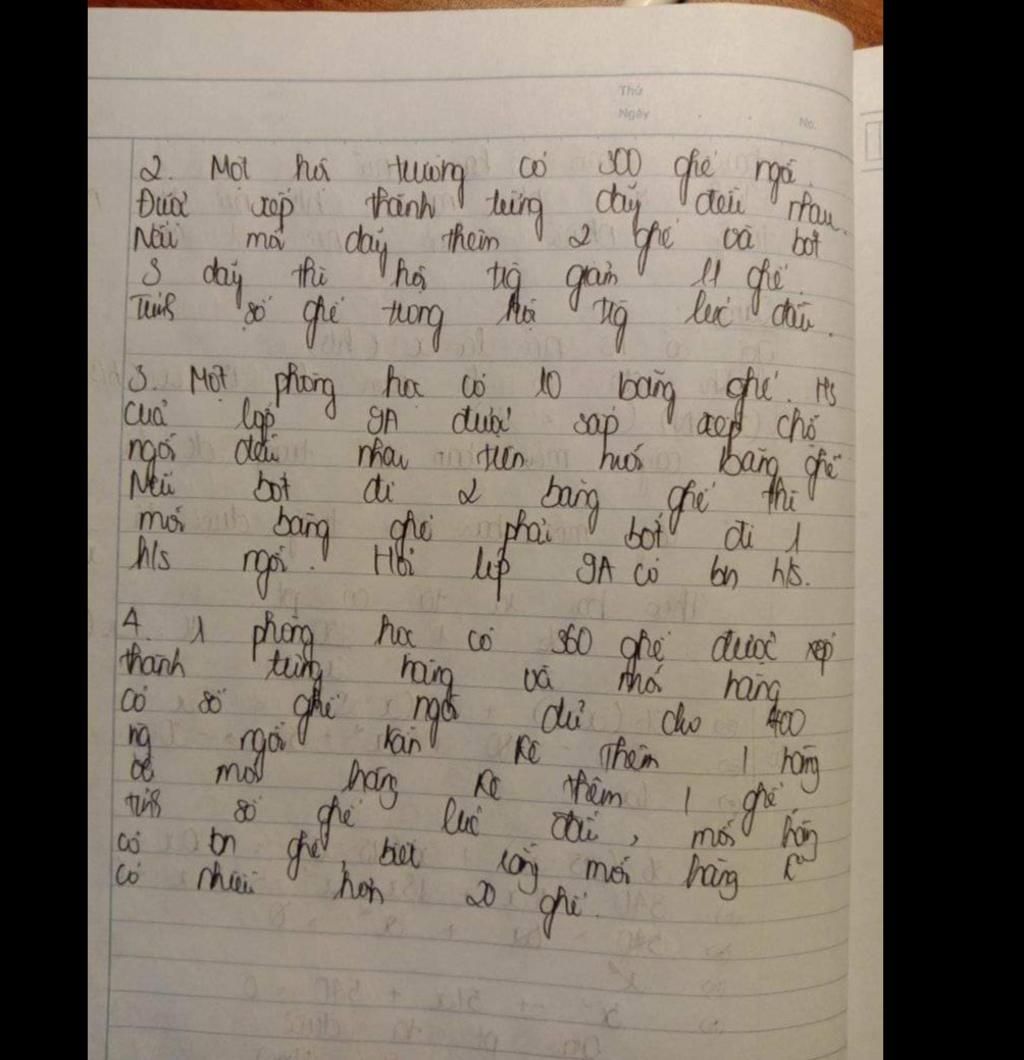 Thứ
Ngày
No.
2. Một hội trường có 300 ghế ngồi.
Được xếp thành từng dãy đều nhau.
Nếu mỗi dãy thêm 2 ghế và bớt
3 dãy thì hội tg giảm 11 ghế.
Tính số ghế trong hội tg lúc đầu.
3. Một phòng học có 10 băng ghế. H/s
của lớp 9A được sắp xếp chỗ
ngồi đều nhau trên mỗi băng ghế
Nếu bớt đi 2 băng ghế thì
mỗi băng ghế phải bớt đi 1
h/s ngồi. Hỏi lớp 9A có bn h/s.
4. 1 phòng học có 360 ghế được xếp
thành từng hàng và mỗi hàng
có số ghế ngồi đủ cho 400
ng ngồi kê thêm 1 hàng
để mỗi hàng kê thêm 1 ghế
tính số ghế lúc đầu, mỗi hàng
có bn ghế, biết rằng mỗi hàng k
có nhiều hơn 20 ghế.